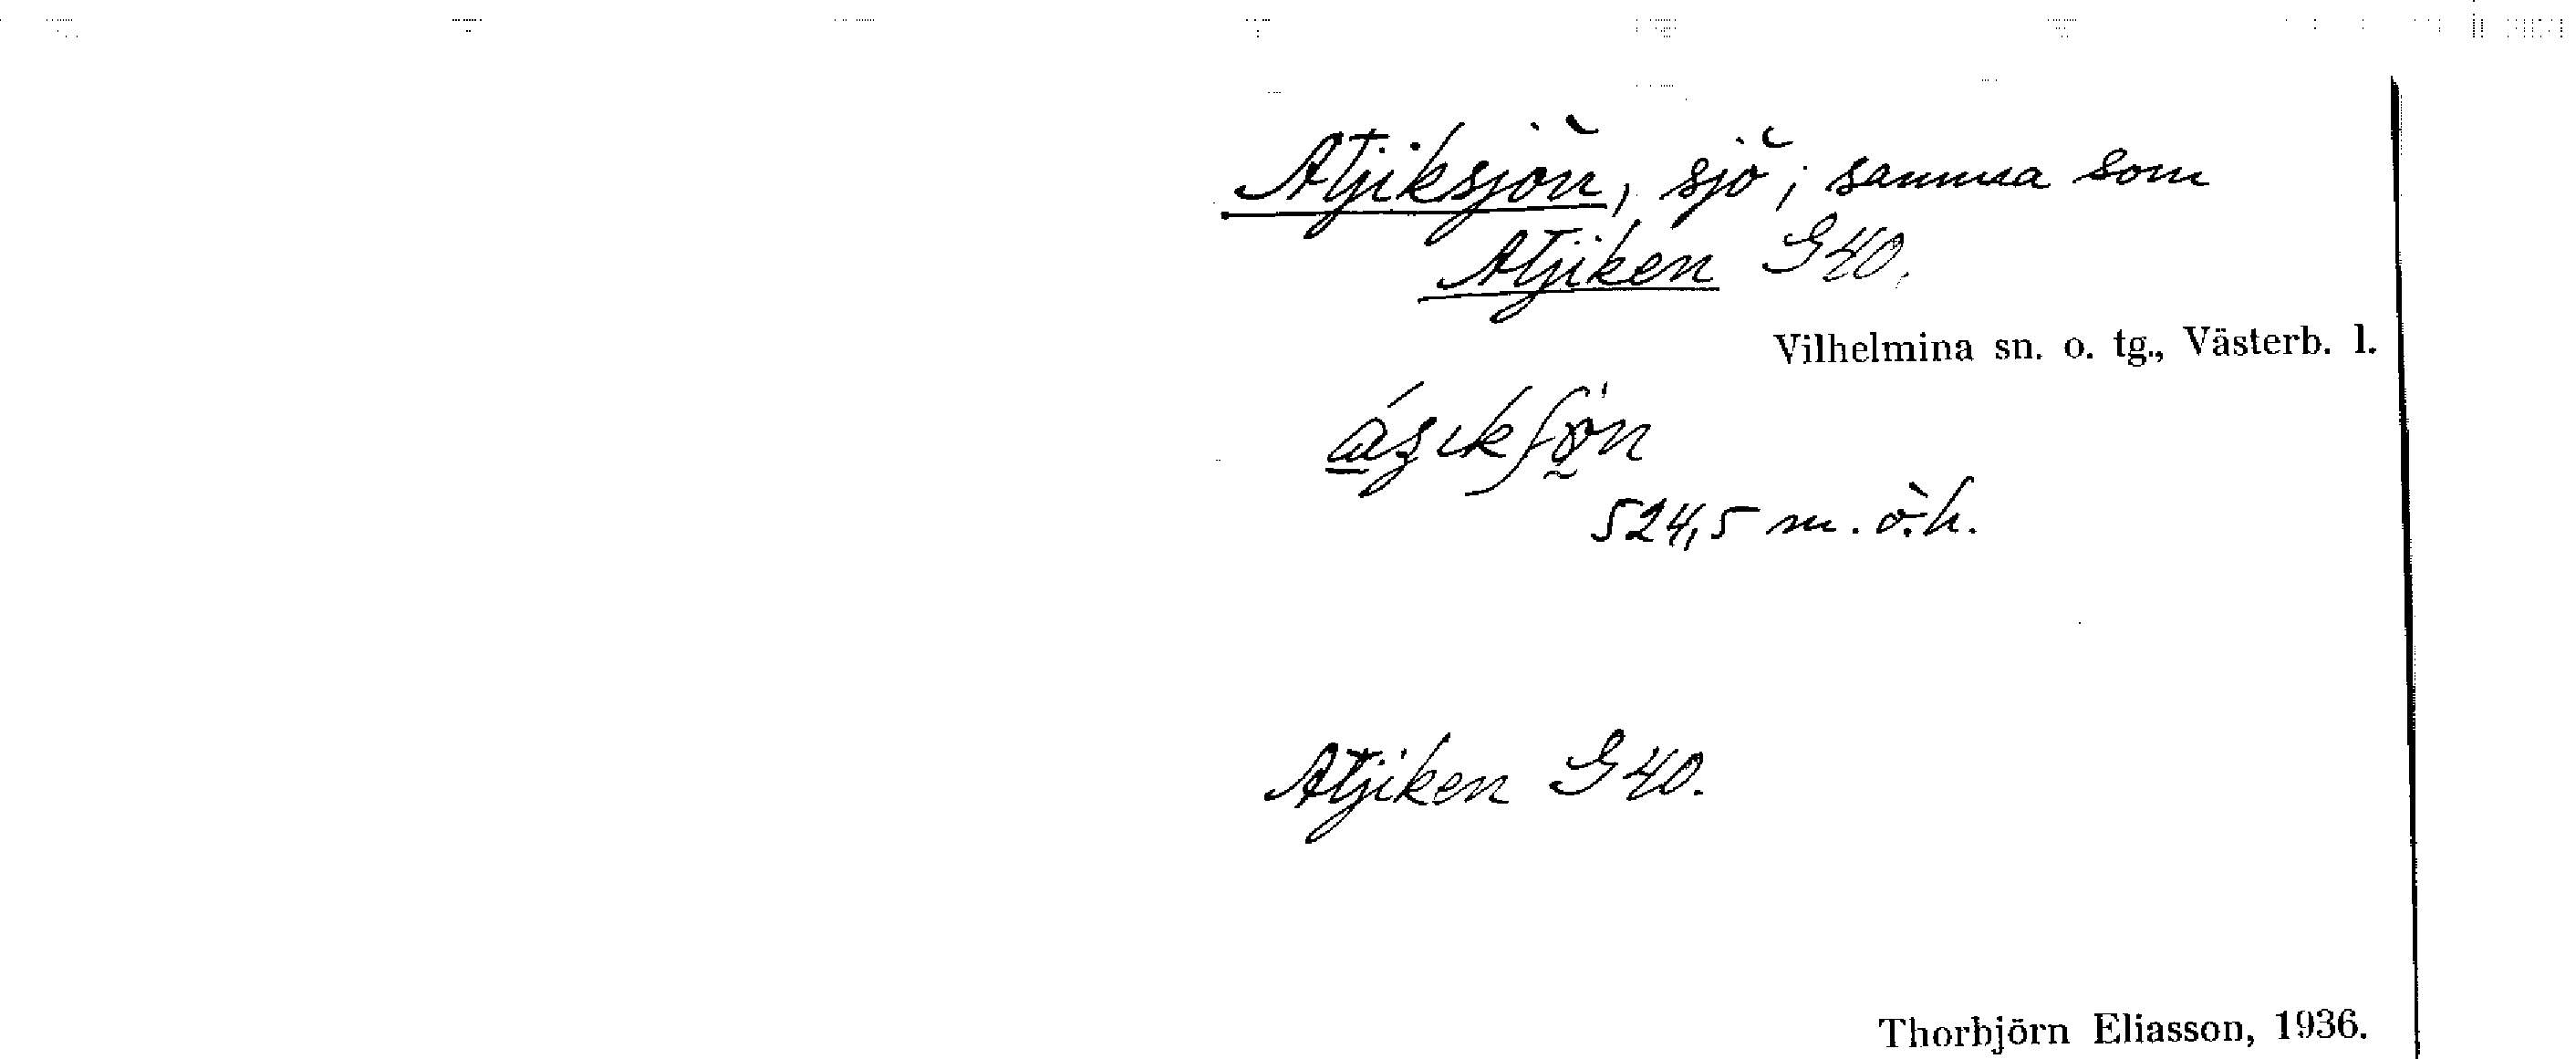 Atjiksjön, sjö; samma som
Atjiken G40.
Vilhelmina sn. o. tg., Västerb. l.
524,5 m. ö. h.
Atjiken G40.
Thorbjörn Eliasson, 1936.